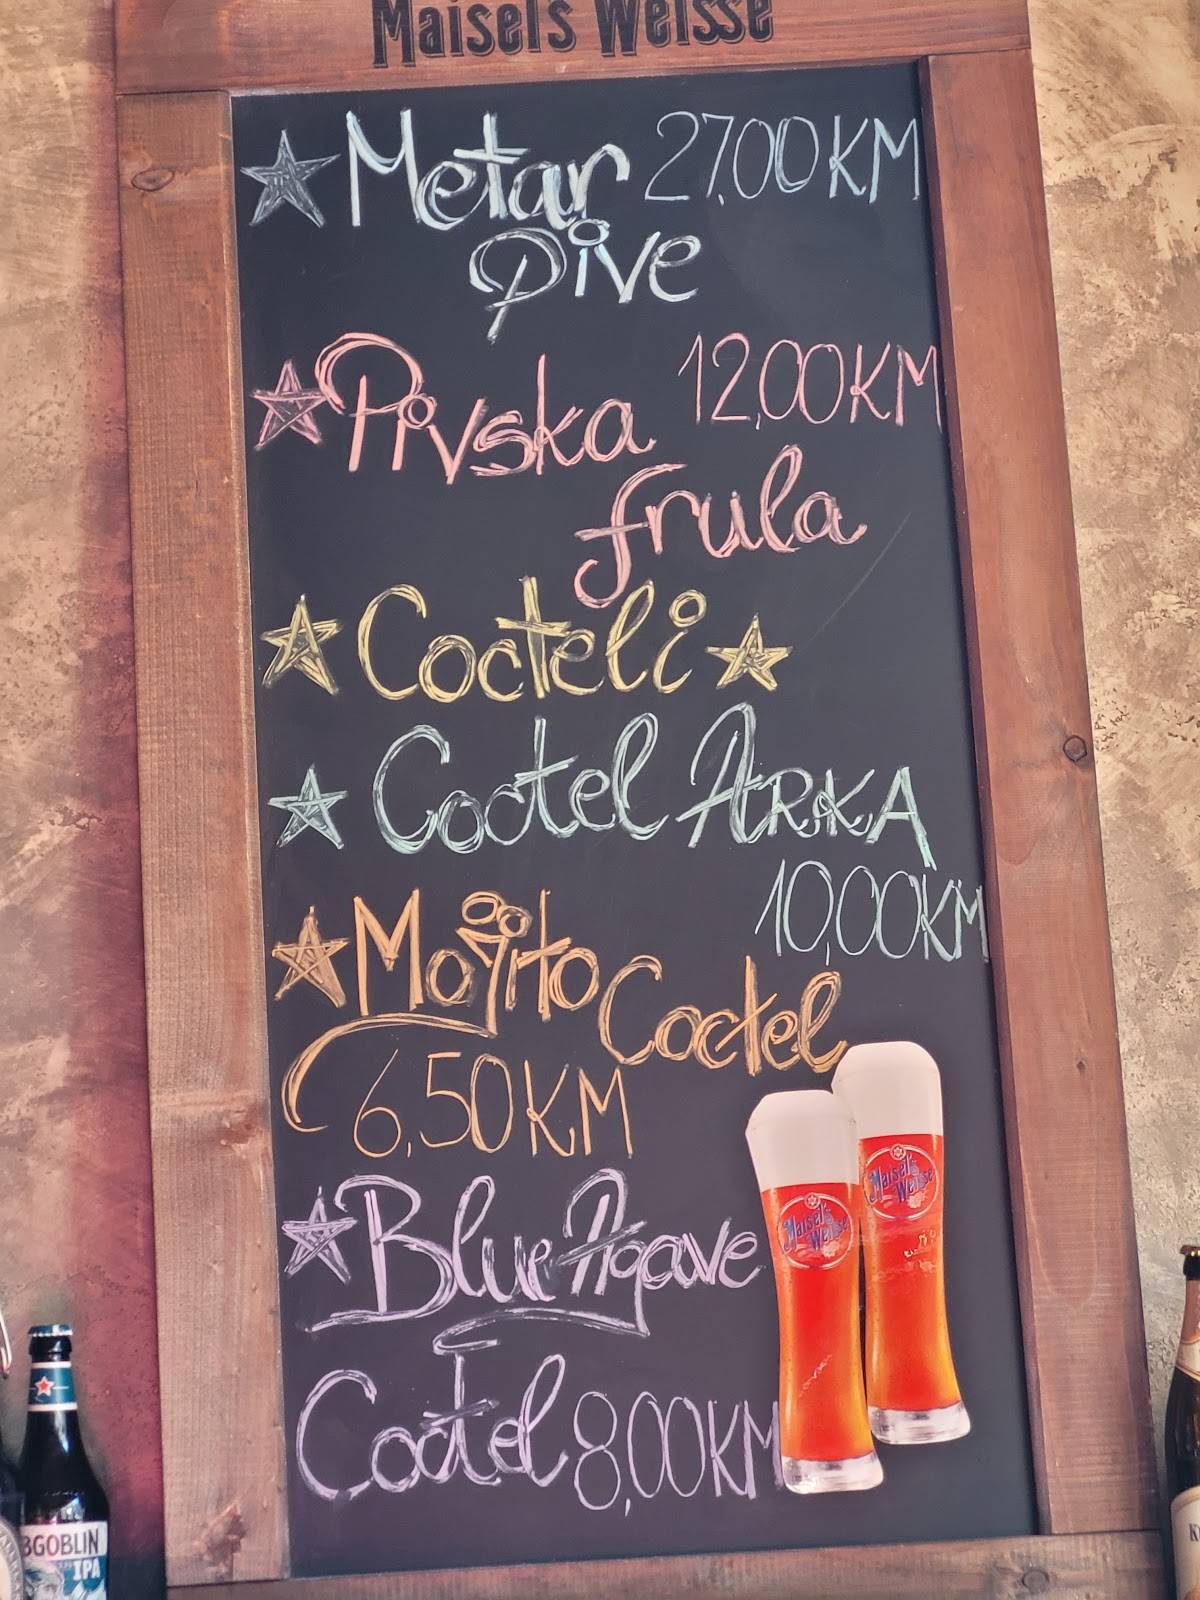 Maisel's Weisse
Metar 27,00KM
Pive
Pivska 12,00KM
frula
Cocteli
Coctel ARKA
10,00KM
Mojito Coctel
6,50KM
Blue Agave
Coctel 8,00KM
Maisel's
Weisse
Maisel's
Weisse
BGOBLIN
IPA